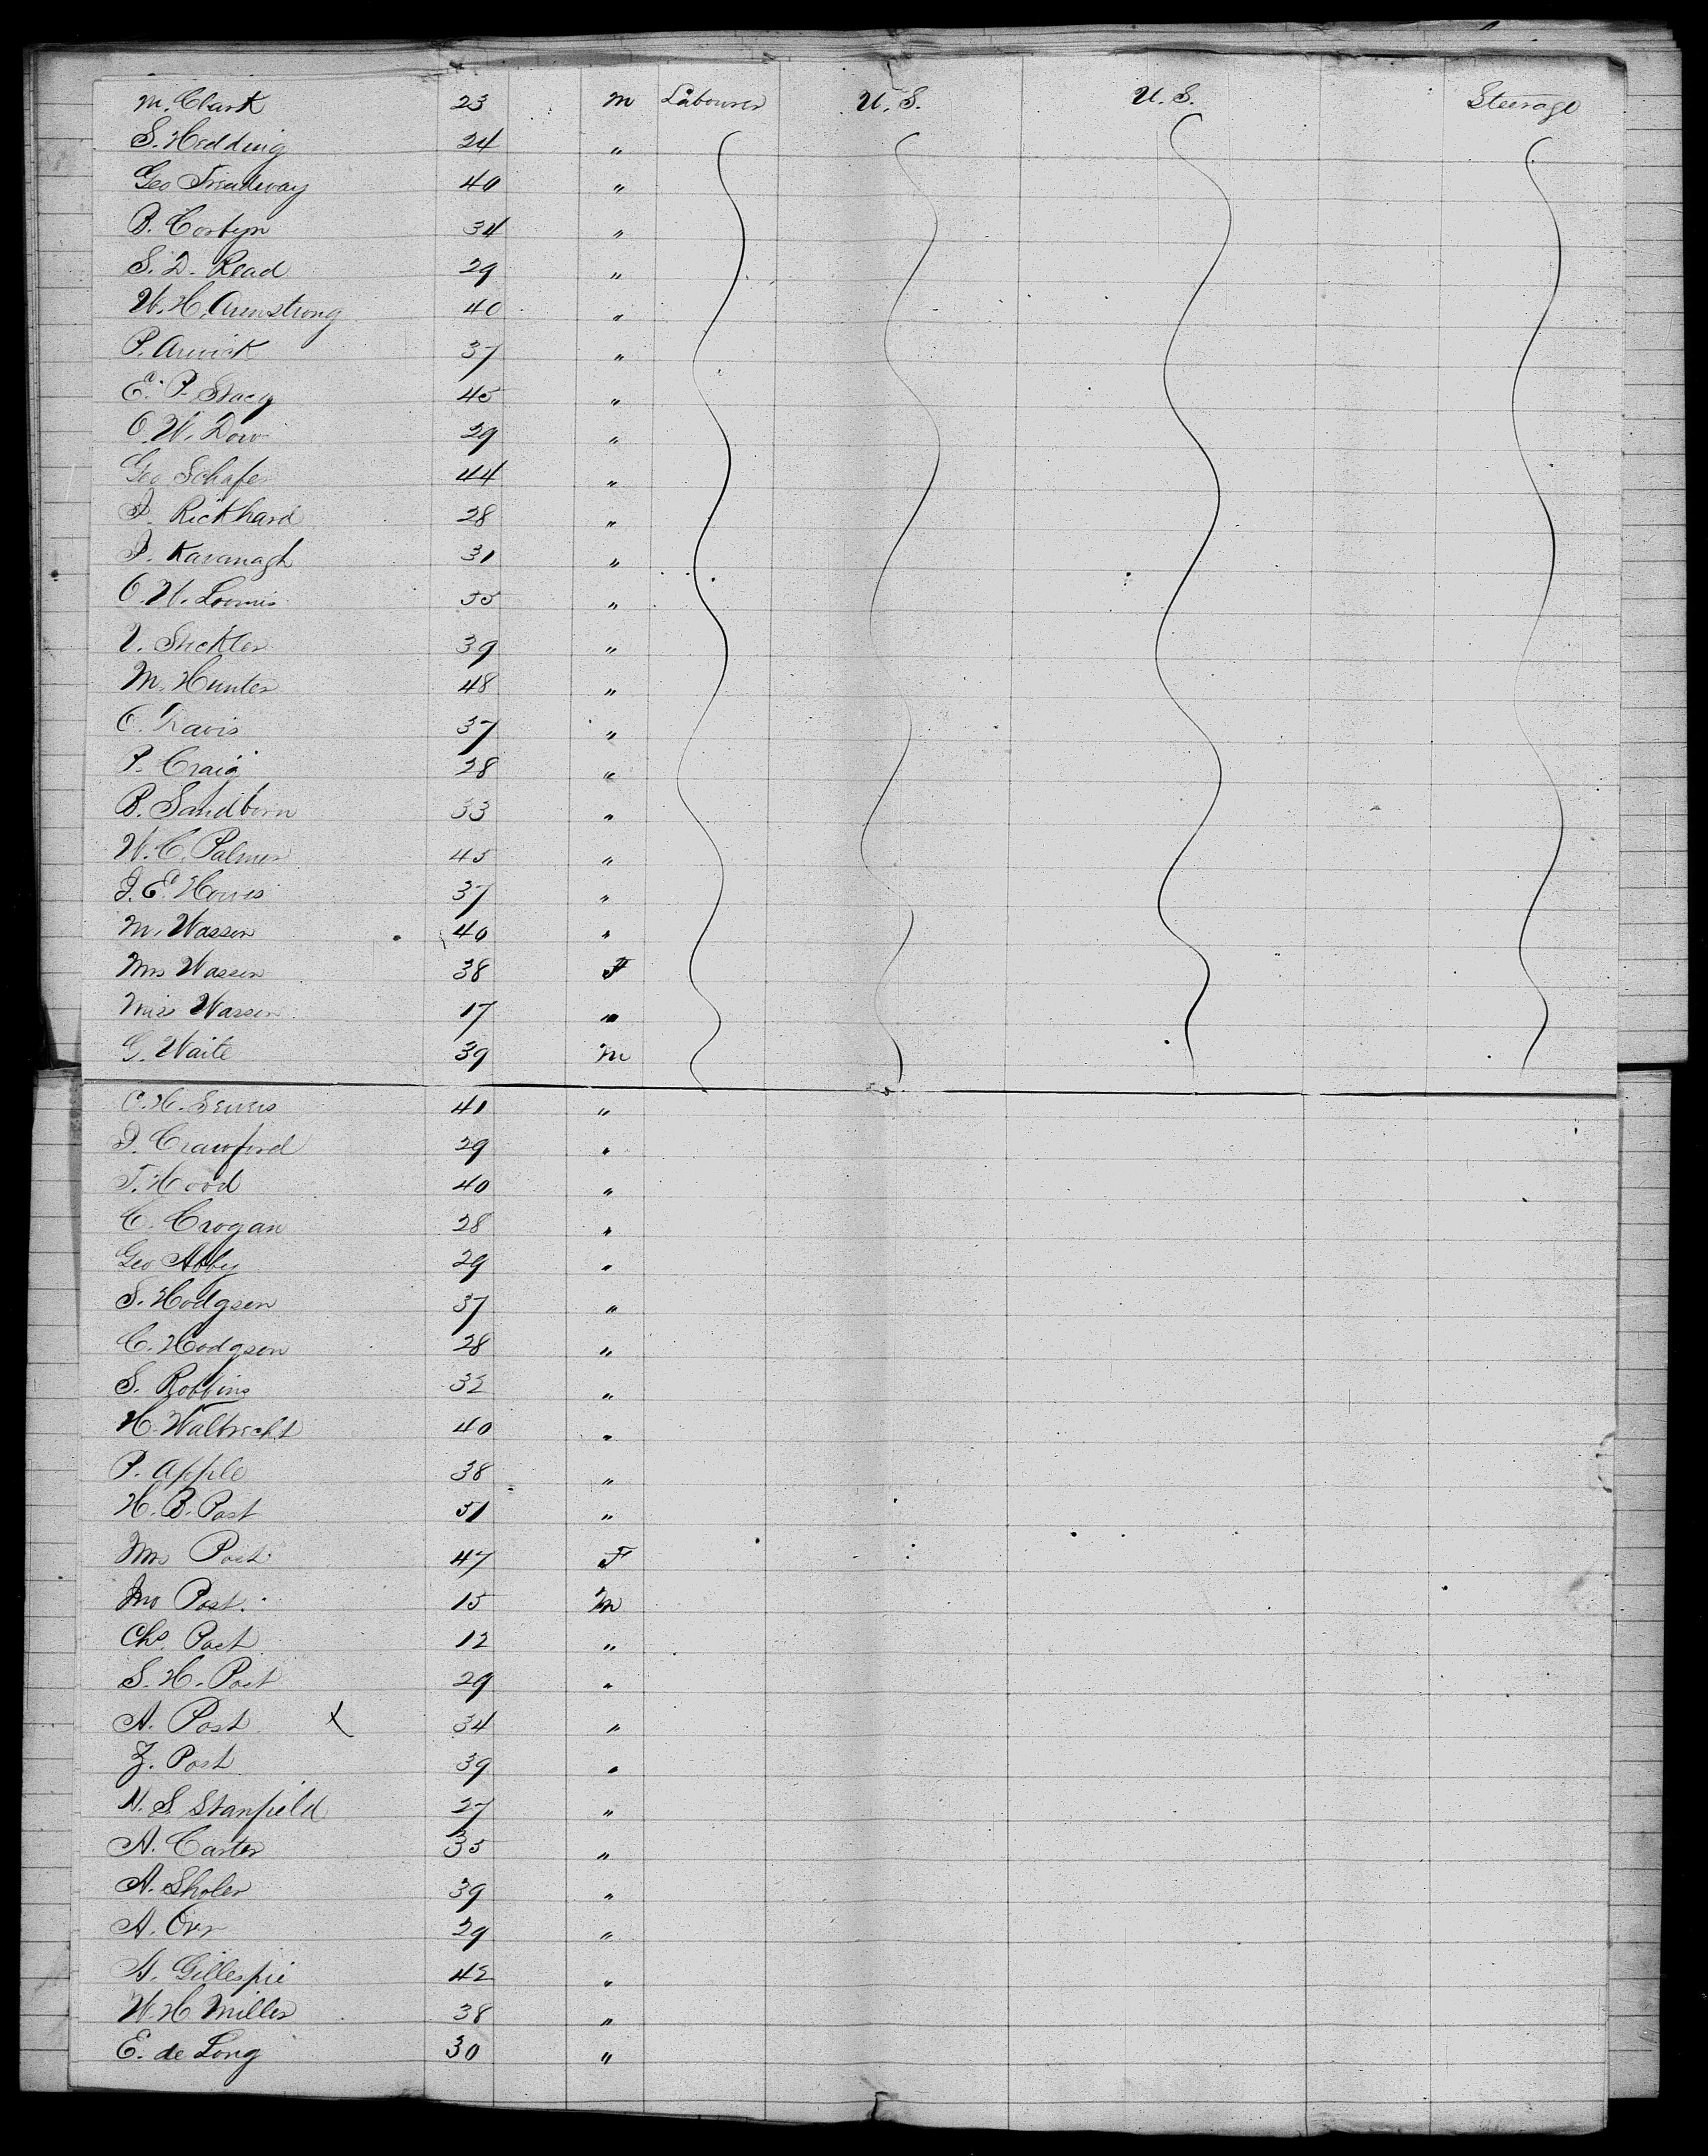 M. Clark 23 M Labourer U.S. U.S. Steerage
S. Hedding 24 "
Geo Treadway 40 "
B. Corbyn 34 "
S. D. Read 29 "
W. H. Armstrong 40 "
P. Arwick 37 "
E. P. Stacy 45 "
O. W. Dow 29 "
Geo Schafer 44 "
J. Rickhard 28 "
J. Kavanagh 31 "
O. W. Loomis 55 "
V. Stickler 39 "
M. Hunter 48 "
C. Travis 37 "
P. Craig 28 "
B. Sandborn 33 "
W. C. Palmer 45 "
J. E. Howes 37 "
M. Wasson 40 "
Mrs Wasson 38 F
Miss Wasson 17 "
G. Waite 39 M
C. H. Lewis 41 "
J. Crawford 29 "
T. Hood 40 "
C. Crogan 28 "
Geo Abby 29 "
S. Hodgson 37 "
C. Hodgson 28 "
S. Robbins 32 "
H. Walbrecht 40 "
P. Apple 38 "
H. B. Post 51 "
Mrs Post 47 F
Jno Post 15 M
Chs. Post 12 "
S. H. Post 29 "
A. Post X 34 "
Z. Post 39 "
N. S. Stanfield 27 "
A. Carter 35 "
A. Sholer 39 "
A. Orr 29 "
A. Gillespie 42 "
W. H. Miller 38 "
E. de Long 30 "